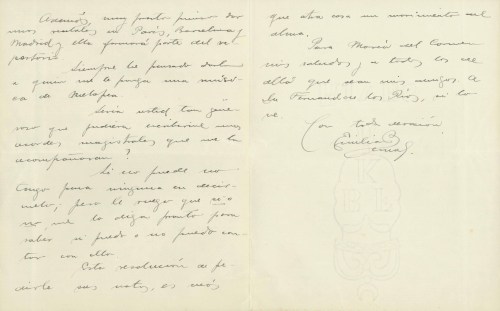 Además, muy pronto pienso dar
unos recitales en París, Barcelona y
Madrid y ella formará parte del re-
pertorio.
Siempre he pensado
a quien me le ponga una músi-
ca de Melopea.
Sería usted tan gene-
roso que pudiera escribirme unos
acordes magistrales que me la
acompañaran?
Si eso puede ser
tengo para ninguna en
; pero le ruego que sí o
no, me lo diga pronto para
saber si puedo o no puedo con-
tar con ello.
Esta resolución de pe-
dirle sus notas, es más
que otra cosa un movimiento del
alma.
Para María del Carmen
mis saludos, a todos los de
allá que sean mis amigos. A
Fernando de los Ríos, si lo
ve
Con toda devoción.